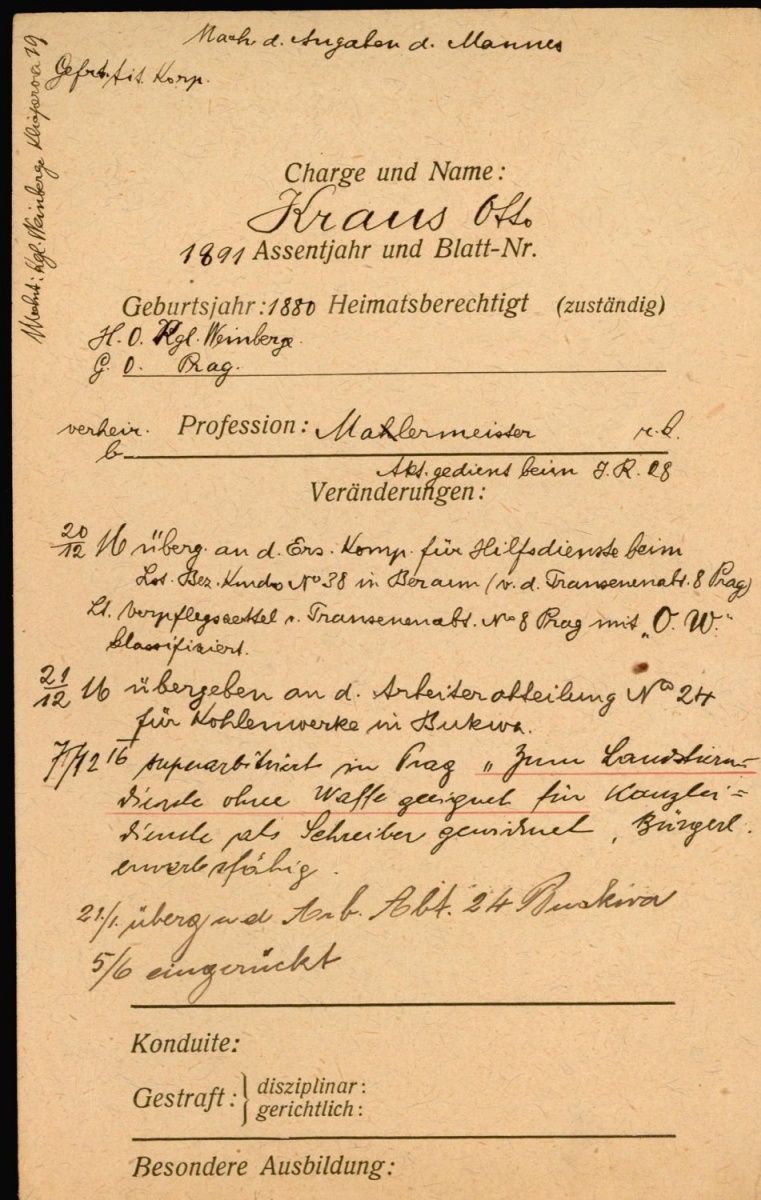 Nach d. Angaben d. Mannes
Gefrt. tit. Korp.
Wohnt: Kgl. Weinberge 19
Charge und Name:
Kraus Otto
1891 Assentjahr und Blatt-Nr.
Geburtsjahr: 1880 Heimatsberechtigt (zuständig)
H. O. Kgl. Weinberge.
G. O. Prag.
verheir. Profession: Mahlermeister r. k.
Akt. gedient beim I. R. 28
Veränderungen:
20/12 16 überg. an d. Ers. Komp. für Hilfsdienste beim
Bez. Kmdo No 38 in Beraun (v. d. Transenenabt. 8 Prag)
Lt. Verpflegszettel v. Transenenabt. No 8 Prag mit "O. W."
klassifiziert.
21/12 16 übergeben an d. Arbeiterabteilung No 24
für Kohlenwerke in Bukwa.
7/12 16 superarbitriert in Prag "Zum Landsturm=
dienste ohne Waffe geeignet für Kanzlei=
dienste als Schreiber gewidmet, Bürgerl.
erwerbsfähig.
21/1. überg. a d Arb. Abt. 24 Buskwa
5/6 eingerückt
Konduite:
Gestraft: } disziplinar:
gerichtlich:
Besondere Ausbildung: